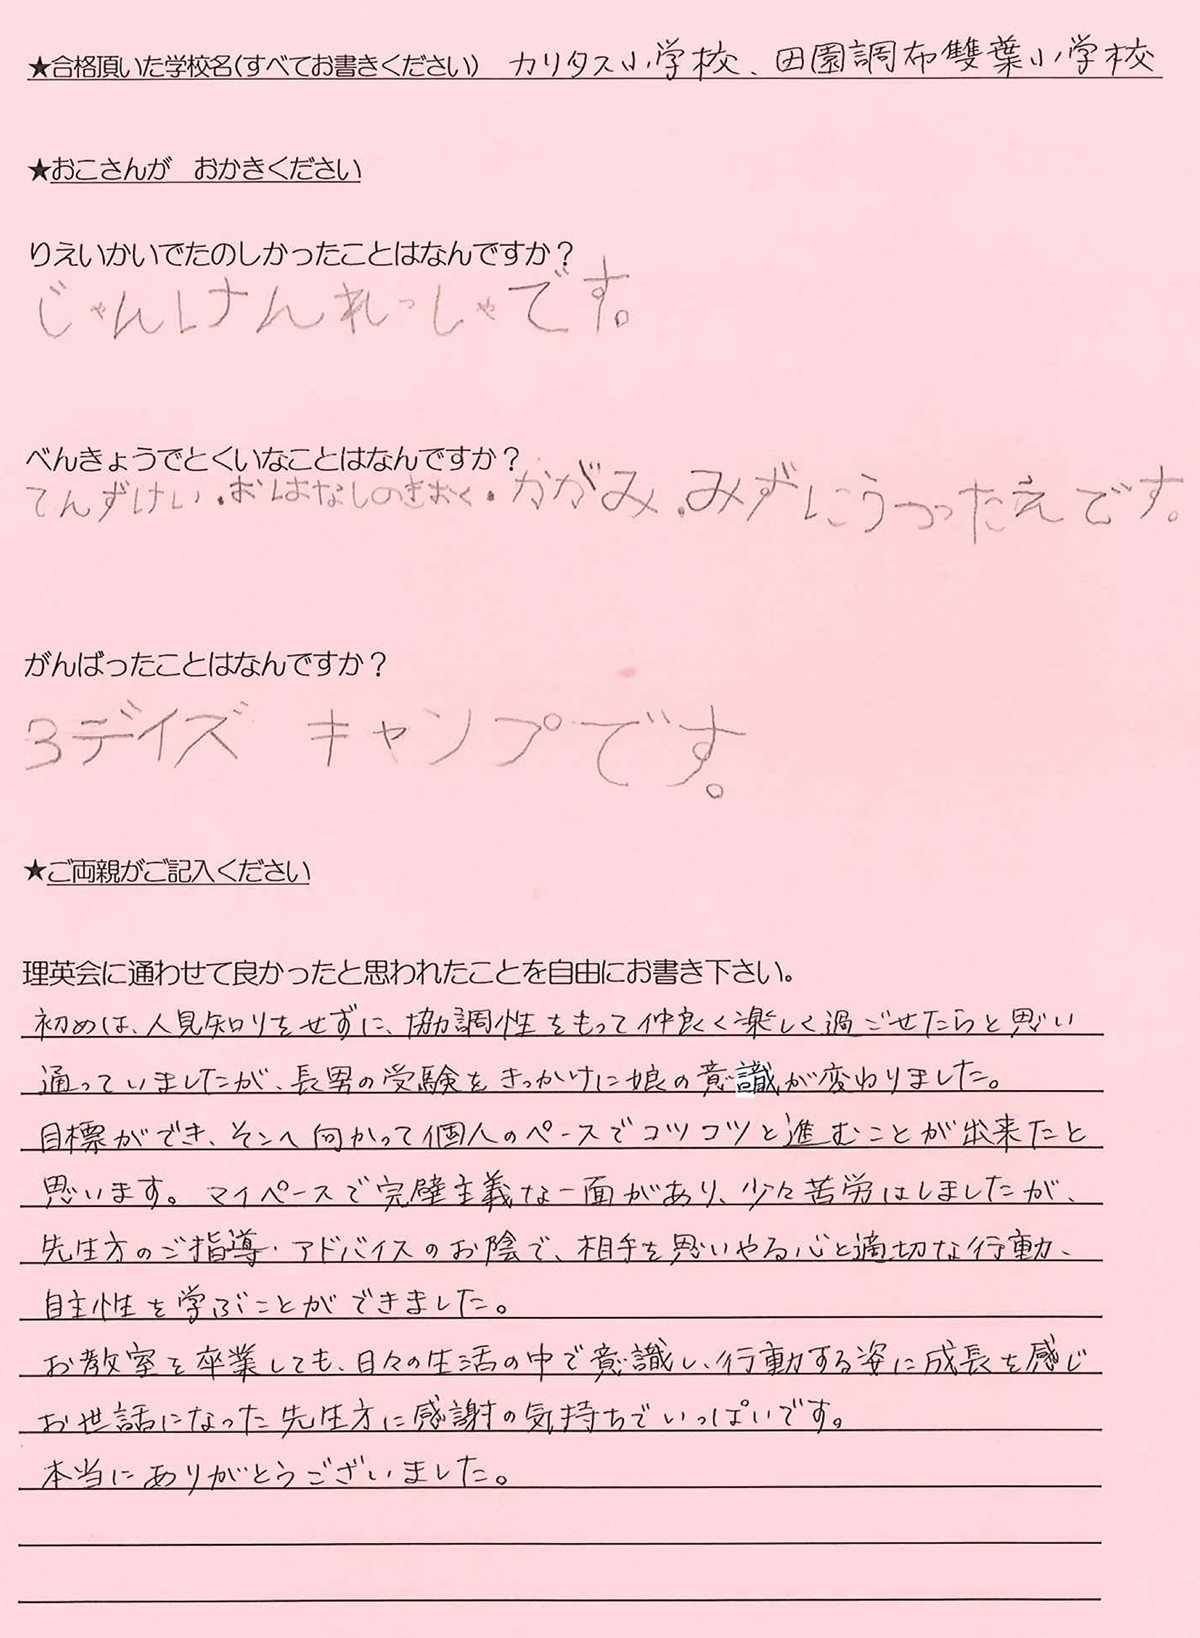 ★合格頂いた学校名(すべてお書きください) カリタス小学校、田園調布雙葉小学校
★おこさんが おかきください
りえいかいでたのしかったことはなんですか？
じゃんけんれっしゃです。
べんきょうでとくいなことはなんですか？
てんずけい・おはなしのきおく・かがみ・みずにうつったえです。
がんばったことはなんですか？
3デイズ キャンプです。
★ご両親がご記入ください
理英会に通わせて良かったと思われたことを自由にお書き下さい。
初めは、人見知りをせずに、協調性をもって仲良く楽しく過ごせたらと思い
通っていましたが、長男の受験をきっかけに娘の意識が変わりました。
目標ができ、そこへ向かって個人のペースでコツコツと進むことが出来たと
思います。マイペースで完璧主義な一面があり、少々苦労はしましたが、
先生方のご指導・アドバイスのお陰で、相手を思いやる心と適切な行動、
自主性を学ぶことができました。
お教室を卒業しても、日々の生活の中で意識し、行動する姿に成長を感じ
お世話になった先生方に感謝の気持ちでいっぱいです。
本当にありがとうございました。